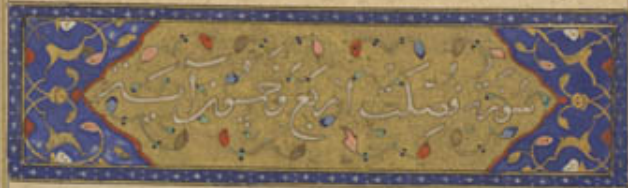 سورة فصلت اربع وخمسون آية